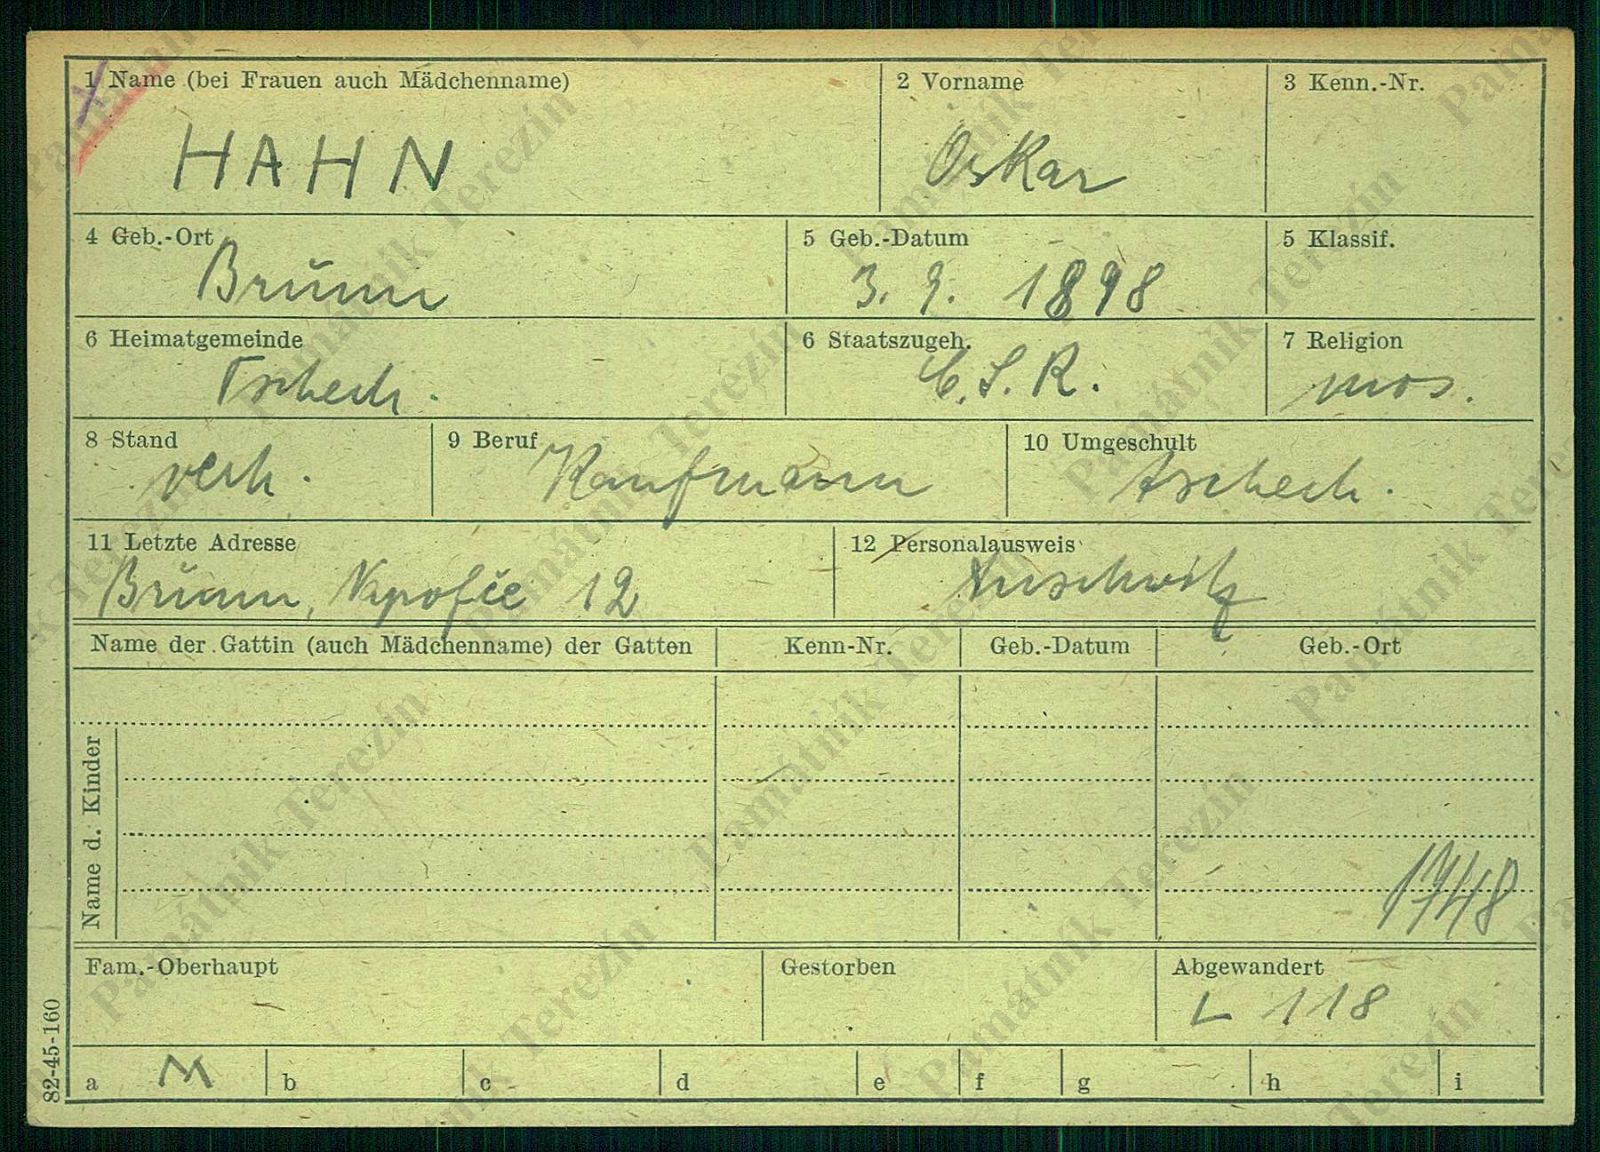 1 Name (bei Frauen auch Mädchenname)
HAHN
2 Vorname
Oskar
3 Kenn.-Nr.
4 Geb.-Ort
Brünn
5 Geb.-Datum
3. 9. 1898
5 Klassif.
6 Heimatgemeinde
Tschech.
6 Staatszugeh.
C.S.R.
7 Religion
mos.
8 Stand
verh.
9 Beruf
Kaufmann
10 Umgeschult
tschech.
11 Letzte Adresse
Brünn, 12
12 Personalausweis
Auschwitz
Name der Gattin (auch Mädchenname) der Gatten
Kenn-Nr.
Geb.-Datum
Geb.-Ort
Name d. Kinder
1748
Fam.-Oberhaupt
Gestorben
Abgewandert
L 118
82-45-160
a M b c d e f g h i
Památník Terezín